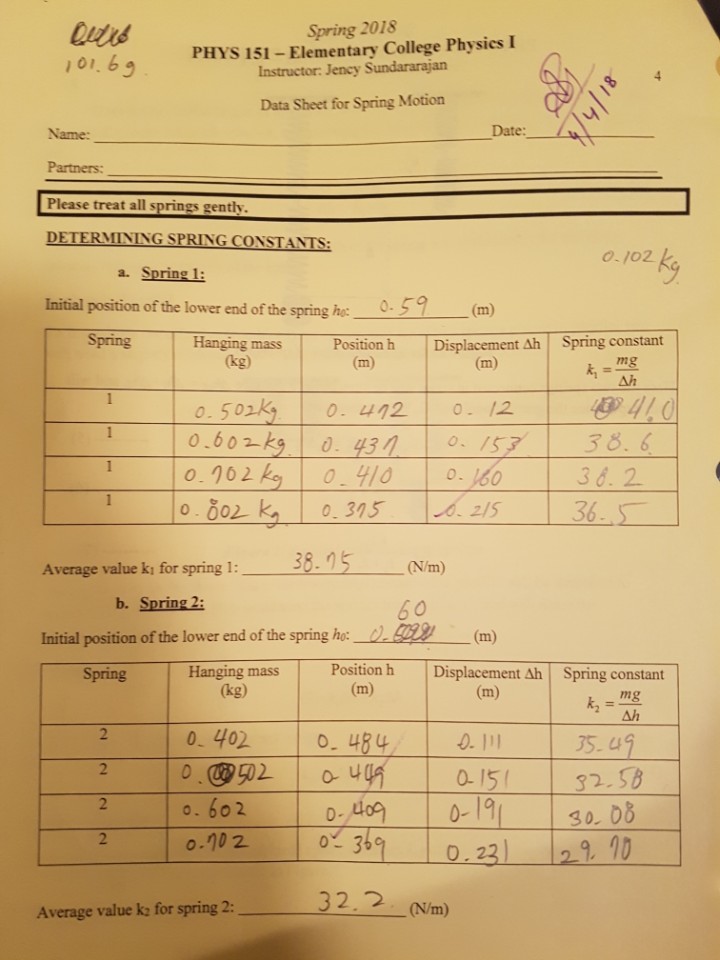 Spring 2018
101.6g
PHYS 151 – Elementary College Physics I
Instructor: Jency Sundararajan
4/4/18
4
Data Sheet for Spring Motion
Name: Date:
Partners:
Please treat all springs gently.
DETERMINING SPRING CONSTANTS:
0.102 kg
a. Spring 1:
Initial position of the lower end of the spring h₀: 0.59 (m)
Spring Hanging mass (kg) Position h (m) Displacement Δh (m) Spring constant k₁ = mg/Δh
1 0.502kg 0.472 0.12 41.0
1 0.602kg 0.437 0.153 38.6
1 0.702kg 0.410 0.160 38.2
1 0.802 kg 0.375 0.215 36.5
Average value k₁ for spring 1: 38.75 (N/m)
b. Spring 2:
60
Initial position of the lower end of the spring h₀: 0. (m)
Spring Hanging mass (kg) Position h (m) Displacement Δh (m) Spring constant k₂ = mg/Δh
2 0.402 0.484 0.111 35.49
2 0.502 0.449 0.151 32.58
2 0.602 0.409 0.191 30.08
2 0.702 0.369 0.231 29.70
Average value k₂ for spring 2: 32.2 (N/m)